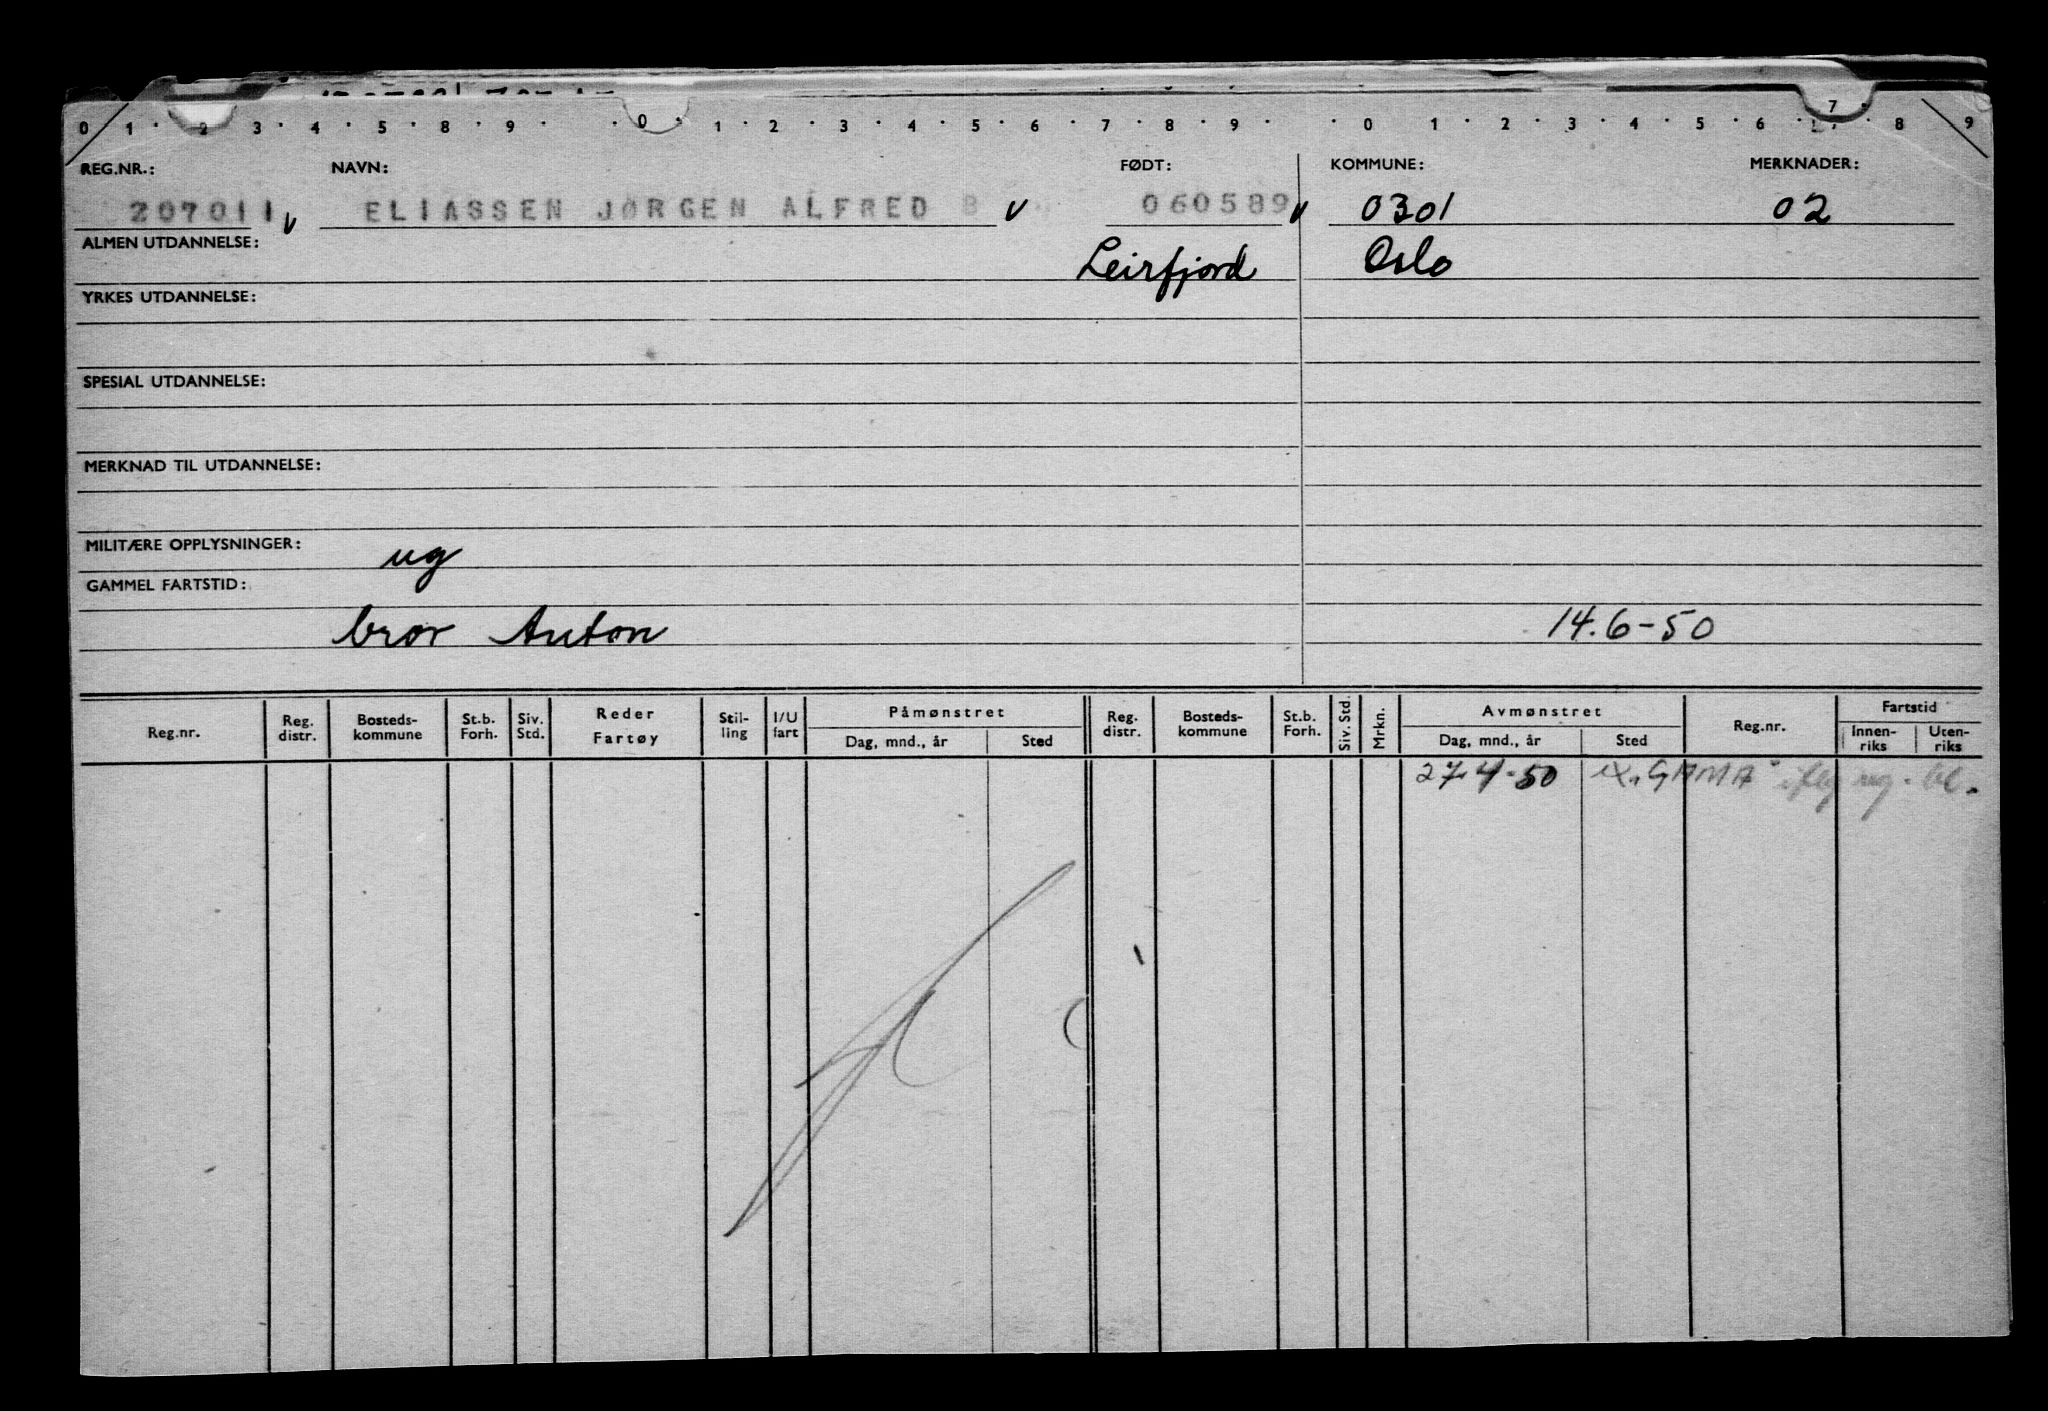 0 1 2 3 4 5 8 9 0 1 2 3 4 5 6 7 8 9 0 1 2 3 4 5 6 7 8 9
REG.NR.: NAVN: FØDT: KOMMUNE: MERKNADER:
207011 v ELIASSEN JØRGEN ALFRED B v 060589 v 0301 02
ALMEN UTDANNELSE: Leirfjord Oslo
YRKES UTDANNELSE:
SPESIAL UTDANNELSE:
MERKNAD TIL UTDANNELSE:
MILITÆRE OPPLYSNINGER: ug
GAMMEL FARTSTID:
bror Anton 14.6-50
Reg.nr. Reg. distr. Bosteds-kommune St.b. Forh. Siv. Std. Reder Fartøy Stil-ling I/U fart Påmønstret Dag, mnd., år Sted Reg. distr. Bosteds-kommune St.b. Forh. Siv. Std. Mrkn. Avmønstret Dag, mnd., år Sted Reg.nr. Fartstid Innen-riks Uten-riks
27-4-50 "GAMA" iflg ug.